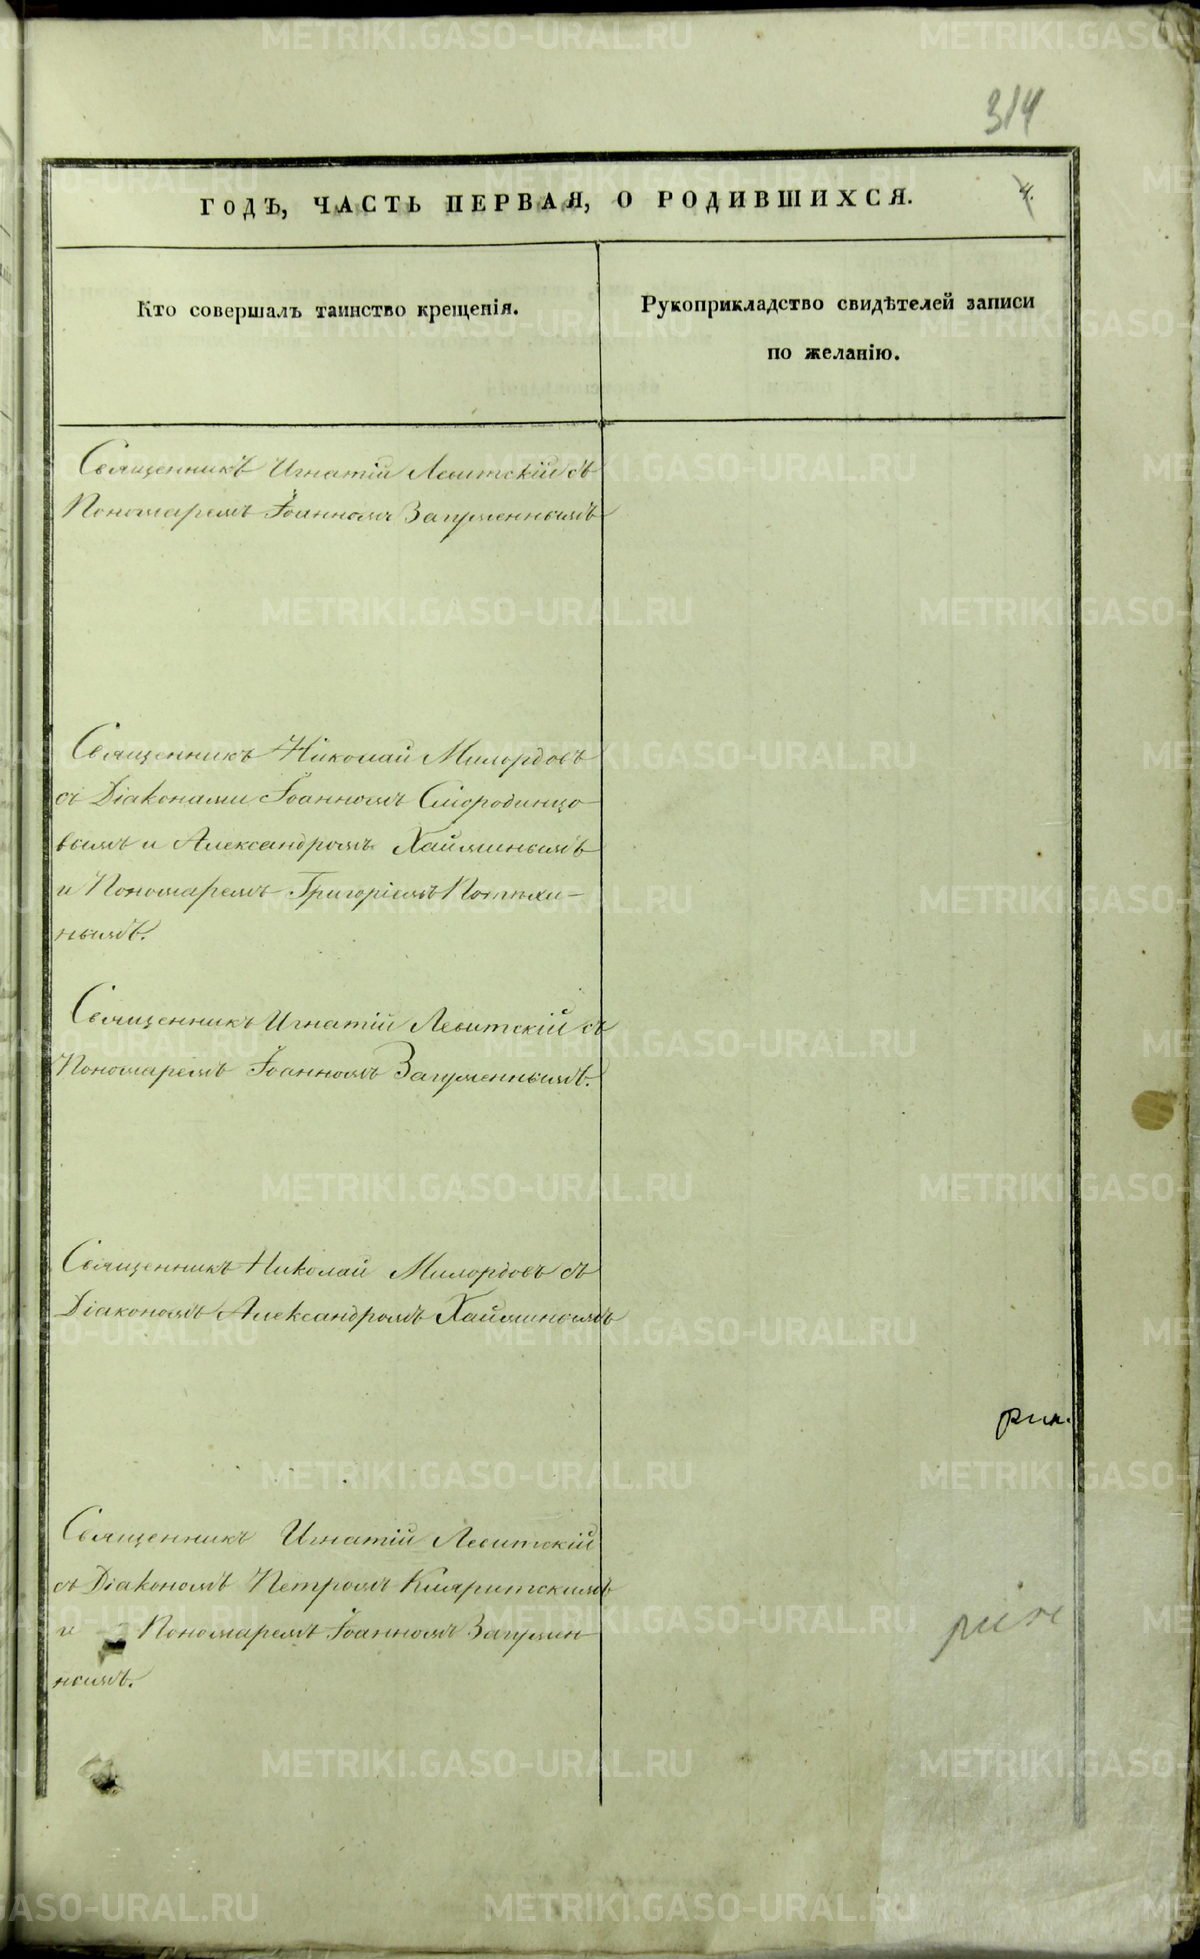 314
ГОДЪ, ЧАСТЬ ПЕРВАЯ, О РОДИВШИХСЯ.
4.
Кто совершалъ таинство крещенія.
Рукоприкладство свидѣтелей записи
по желанію.
Священникъ Игнатій Левитскій съ
Пономаремъ Іоанномъ Загуменнымъ
Священникъ Николай Милордовъ
съ Діаконами Іоанномъ Смородинцо-
вымъ и Александромъ Хайминымъ
и Пономаремъ Григоріемъ Потѣхи-
нымъ.
Священникъ Игнатій Левитскій съ
Пономаремъ Іоанномъ Загуменнымъ.
Священникъ Николай Милордовъ съ
Діакономъ Александромъ Хайминымъ
Священникъ Игнатій Левитскій
съ Діакономъ Петромъ
и Пономаремъ Іоанномъ Загумен-
нымъ.
METRIKI.GASO-URAL.RU